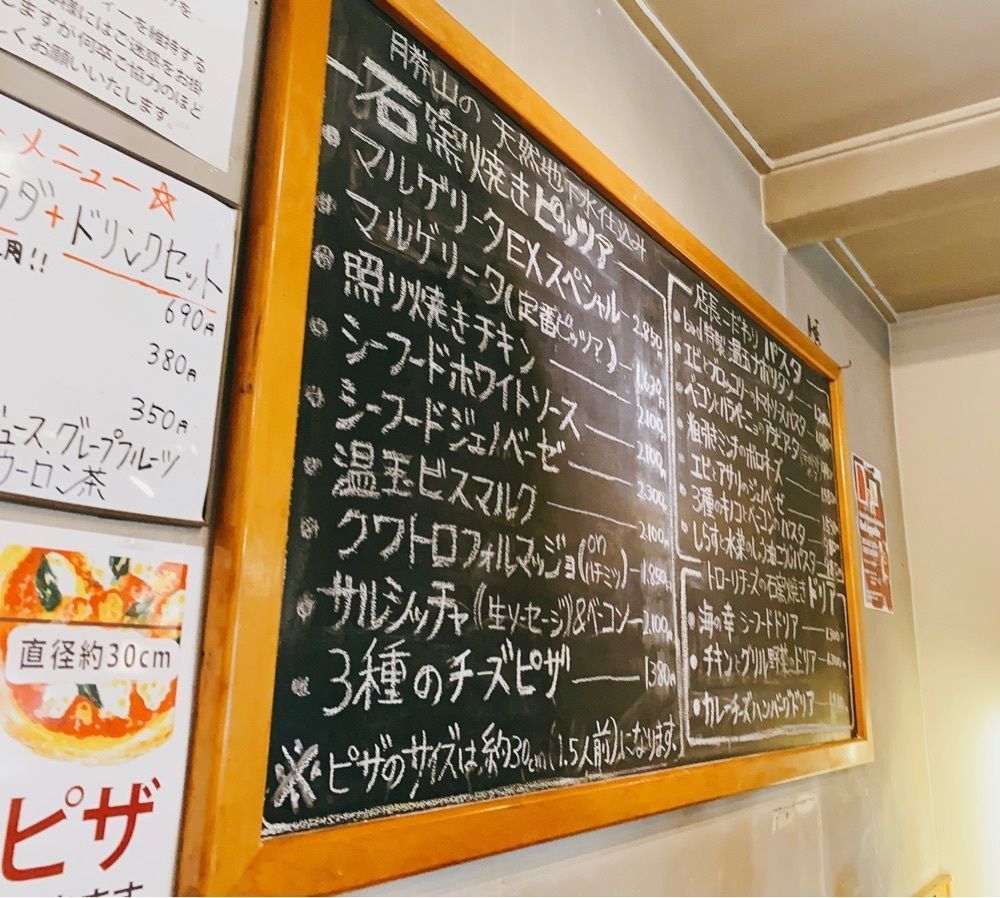 ィーを維持する
様にはご迷惑をお掛
しますが何卒ご協力のほど
しくお願いいたします。
メニュー☆
ラダ+ドリンクセット
用!!
690円
380円
350円
ュース、グレープフルーツ
ウーロン茶
直径約30cm
ピザ
勝山の天然地下水仕込み
石窯焼きピッツァ
マルゲリータEXスペシャル 2.850円
マルゲリータ(定番ピッツァ) 1.630円
照り焼きチキン 2.100円
シーフードホワイトソース 2.100円
シーフードジェノベーゼ 2.300円
温玉ビスマルク 2.100円
クワトロフォルマッジョ(onハチミツ) 1.850円
サルシッチャ(生ソーセージ)&ベーコン 2.100円
3種のチーズピザ 1.380円
※ピザのサイズは、約30cm(1.5人前)になります。
店長こだわりパスタ
・特製温玉ナポリタン
・エビとブロッコリーのトマトソースパスタ
・ベーコンとハラペーニョのアラビアータ
・粗引きミンチのボロネーズ
・エビとアサリのジェノベーゼ
・3種のキノコとベーコンのパスタ
・しらすと水菜の
トローリチーズの石窯焼きドリア
・海の幸シーフードドリア
・チキンとグリル野菜のドリア
・カレーチーズハンバーグドリア